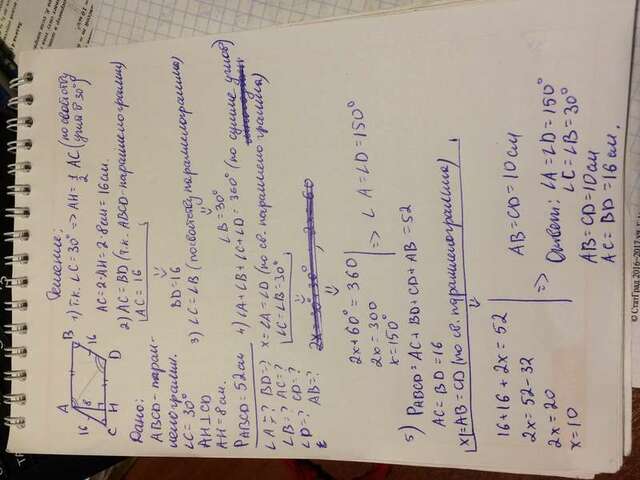 A
B
16
8
16
C
H
D
Дано:
ABCD - парал-
лелограмм.
∠C = 30°
AH⊥CD
AH = 8см.
PABCD = 52см
∠A = ? BD = ?
∠B = ? AC = ?
∠C = ? CD = ?
∠D = ? AB = ?
Решение:
1) т.к. ∠C = 30° => AH = 1/2 AC (по свойству
угла в 30°)
AC = 2·AH = 2·8см = 16см.
2) AC = BD (т.к. ABCD - параллелограмм)
AC = 16
BD = 16
3) ∠C = ∠B (по свойству параллелограмма)
∠B = 30°
4) ∠A + ∠B + ∠C + ∠D = 360° (по сумме углов
x = ∠A = ∠D (по св. параллелограмма)
∠C = ∠B = 30°
2x + 60° = 360
2x = 300
x = 150°
=> ∠A = ∠D = 150°
5) PABCD = AC + BD + CD + AB = 52
AC = BD = 16
x = AB = CD (по св. параллелограмма)
16 + 16 + 2x = 52
2x = 52 - 32
2x = 20
x = 10
=>
AB = CD = 10см
Ответ: ∠A = ∠D = 150°
∠C = ∠B = 30°
AB = CD = 10см
AC = BD = 16см.